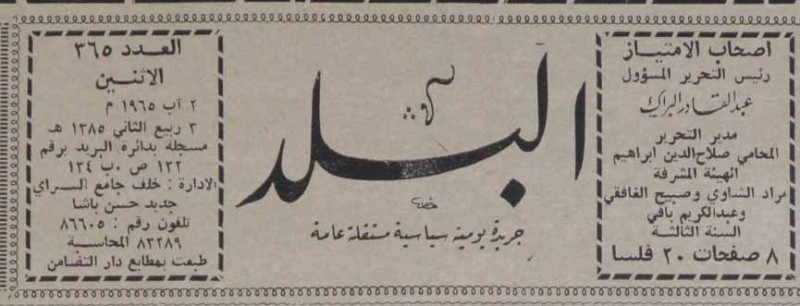 اصحاب الامتياز
رئيس التحرير المسؤول
عبدالقادر البراك
مدير التحرير
المحامي صلاح الدين ابراهيم
الهيئة المشرفة
مراد الشاوي وصبيح الغافقي
وعبدالكريم بافي
السنة الثالثة
٨ صفحات ٢٠ فلسا
البلد
جريدة يومية سياسية مستقلة عامة
العدد ٣٦٥
الاثنين
٢ آب ١٩٦٥ م
٣ ربيع الثاني ١٣٨٥ هـ
مسجلة بدائرة البريد برقم
١٣٢ ص .ب ١٣٤
الادارة : خلف جامع السراي
جديد حسن باشا
تلفون رقم : ٨٦٦٠٥
٨٢٢٨٩ المحاسبة
طبعت بمطابع دار التضامن